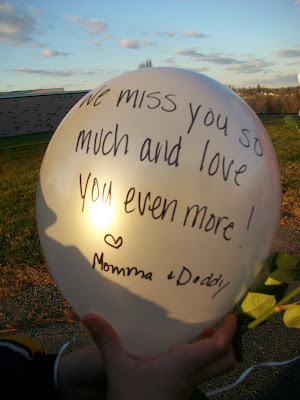 We miss you so
much and love
you even more!
♡
Momma & Daddy